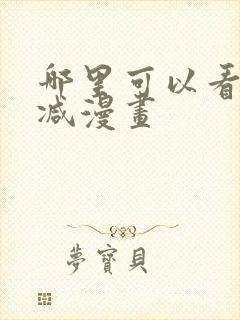 哪里可以看
减漫畫
夢寶貝